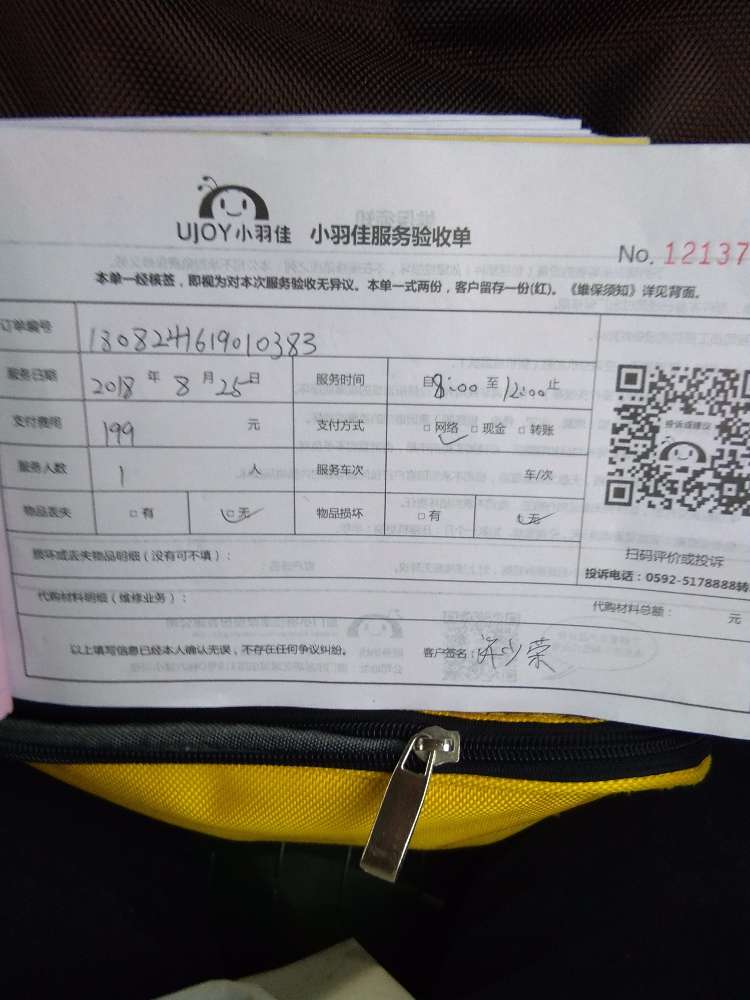 UJOY小羽佳 小羽佳服务验收单
No. 12137
本单一经核签，即视为对本次服务验收无异议。本单一式两份，客户留存一份(红)。《维保须知》详见背面。
订单编号 1808241619010383
服务日期 2018 年 8 月 25 日 服务时间 自 8:00 至 12:00 止
支付费用 199 元 支付方式 □网络 □现金 □转账
服务人数 1 人 服务车次 车/次
物品丢失 □有 □无 物品损坏 □有 □无
投诉或建议
扫码评价或投诉
投诉电话：0592-5178888转
损坏或丢失物品明细（没有可不填）：
代购材料明细（维修业务）： 代购材料总额： 元
以上填写信息已经本人确认无误，不存在任何争议纠纷。 客户签名：许少荣